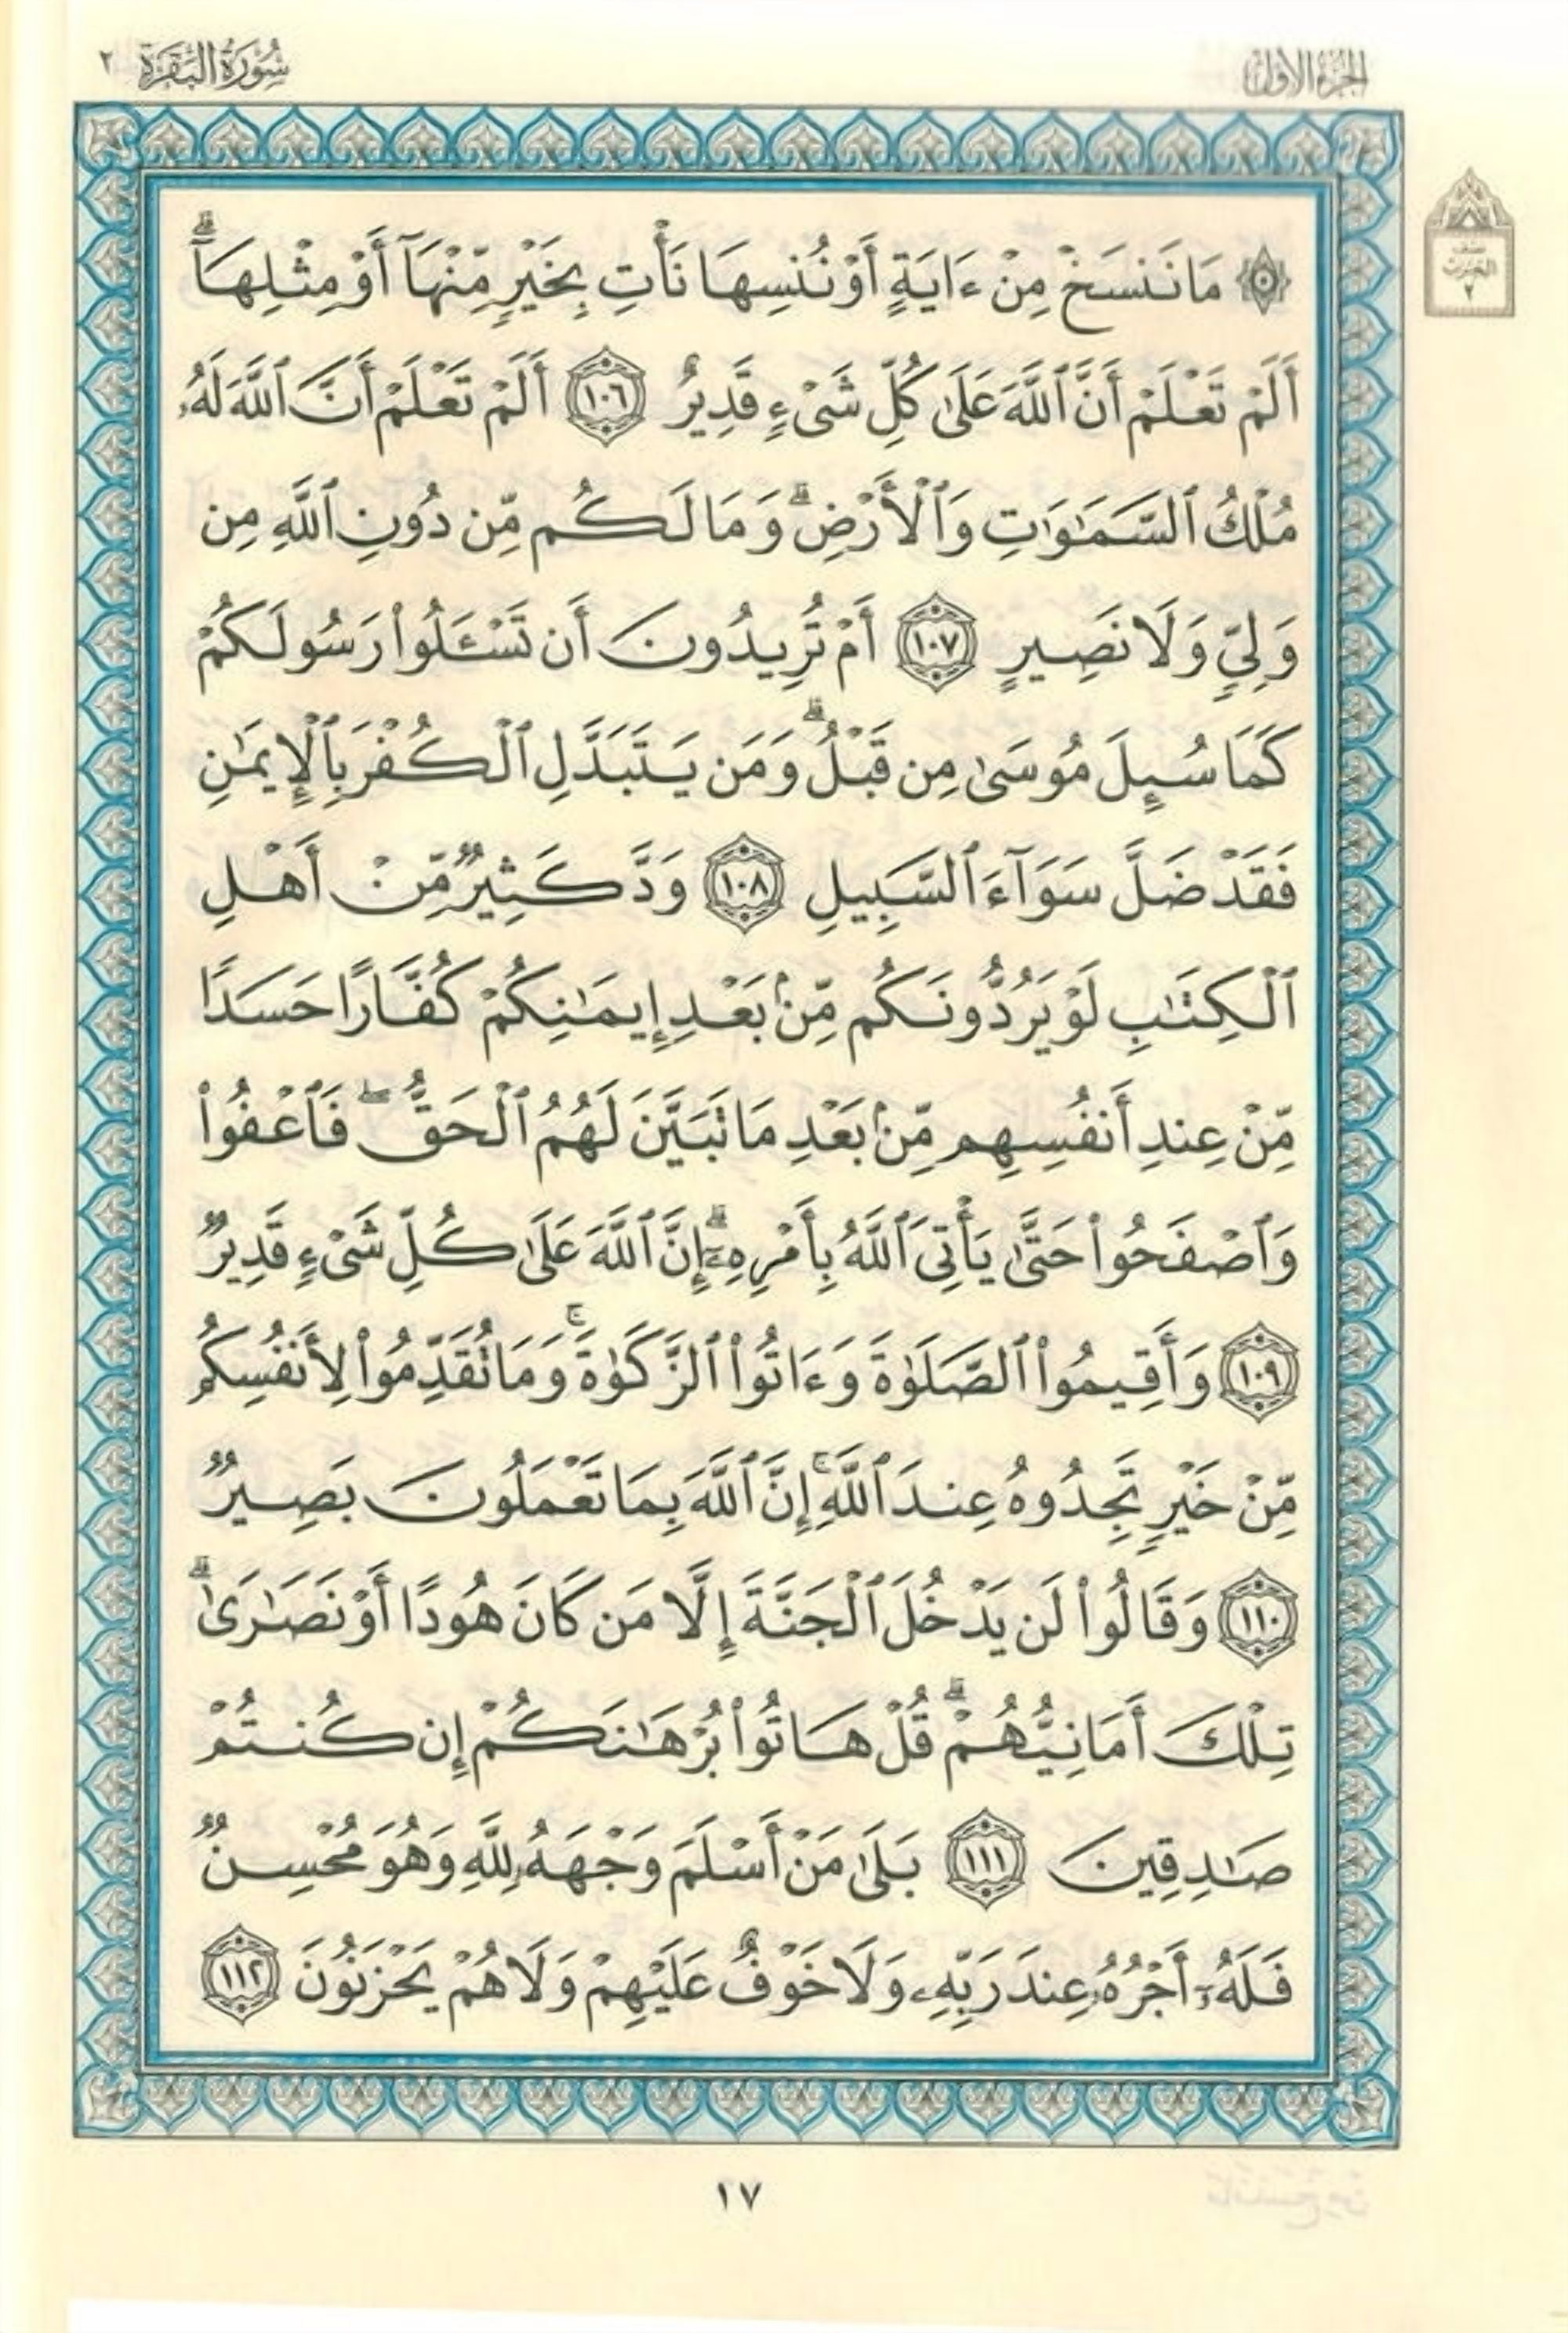 الجزء الأول
سورة البقرة ٢
نصف
الحزب
٢
۞ مَا نَنسَخْ مِنْ ءَايَةٍ أَوْ نُنسِهَا نَأْتِ بِخَيْرٍ مِّنْهَآ أَوْ مِثْلِهَآ ۗ
أَلَمْ تَعْلَمْ أَنَّ ٱللَّهَ عَلَىٰ كُلِّ شَىْءٍ قَدِيرٌ ١٠٦ أَلَمْ تَعْلَمْ أَنَّ ٱللَّهَ لَهُۥ
مُلْكُ ٱلسَّمَٰوَٰتِ وَٱلْأَرْضِ ۗ وَمَا لَكُم مِّن دُونِ ٱللَّهِ مِن
وَلِىٍّ وَلَا نَصِيرٍ ١٠٧ أَمْ تُرِيدُونَ أَن تَسْـَٔلُوا۟ رَسُولَكُمْ
كَمَا سُئِلَ مُوسَىٰ مِن قَبْلُ ۗ وَمَن يَتَبَدَّلِ ٱلْكُفْرَ بِٱلْإِيمَٰنِ
فَقَدْ ضَلَّ سَوَآءَ ٱلسَّبِيلِ ١٠٨ وَدَّ كَثِيرٌ مِّنْ أَهْلِ
ٱلْكِتَٰبِ لَوْ يَرُدُّونَكُم مِّنۢ بَعْدِ إِيمَٰنِكُمْ كُفَّارًا حَسَدًا
مِّنْ عِندِ أَنفُسِهِم مِّنۢ بَعْدِ مَا تَبَيَّنَ لَهُمُ ٱلْحَقُّ ۖ فَٱعْفُوا۟
وَٱصْفَحُوا۟ حَتَّىٰ يَأْتِىَ ٱللَّهُ بِأَمْرِهِۦٓ ۗ إِنَّ ٱللَّهَ عَلَىٰ كُلِّ شَىْءٍ قَدِيرٌ
١٠٩ وَأَقِيمُوا۟ ٱلصَّلَوٰةَ وَءَاتُوا۟ ٱلزَّكَوٰةَ ۚ وَمَا تُقَدِّمُوا۟ لِأَنفُسِكُم
مِّنْ خَيْرٍ تَجِدُوهُ عِندَ ٱللَّهِ ۚ إِنَّ ٱللَّهَ بِمَا تَعْمَلُونَ بَصِيرٌ
١١٠ وَقَالُوا۟ لَن يَدْخُلَ ٱلْجَنَّةَ إِلَّا مَن كَانَ هُودًا أَوْ نَصَٰرَىٰ ۗ
تِلْكَ أَمَانِيُّهُمْ ۗ قُلْ هَاتُوا۟ بُرْهَٰنَكُمْ إِن كُنتُمْ
صَٰدِقِينَ ١١١ بَلَىٰ مَنْ أَسْلَمَ وَجْهَهُۥ لِلَّهِ وَهُوَ مُحْسِنٌ
فَلَهُۥٓ أَجْرُهُۥ عِندَ رَبِّهِۦ وَلَا خَوْفٌ عَلَيْهِمْ وَلَا هُمْ يَحْزَنُونَ ١١٢
١٧